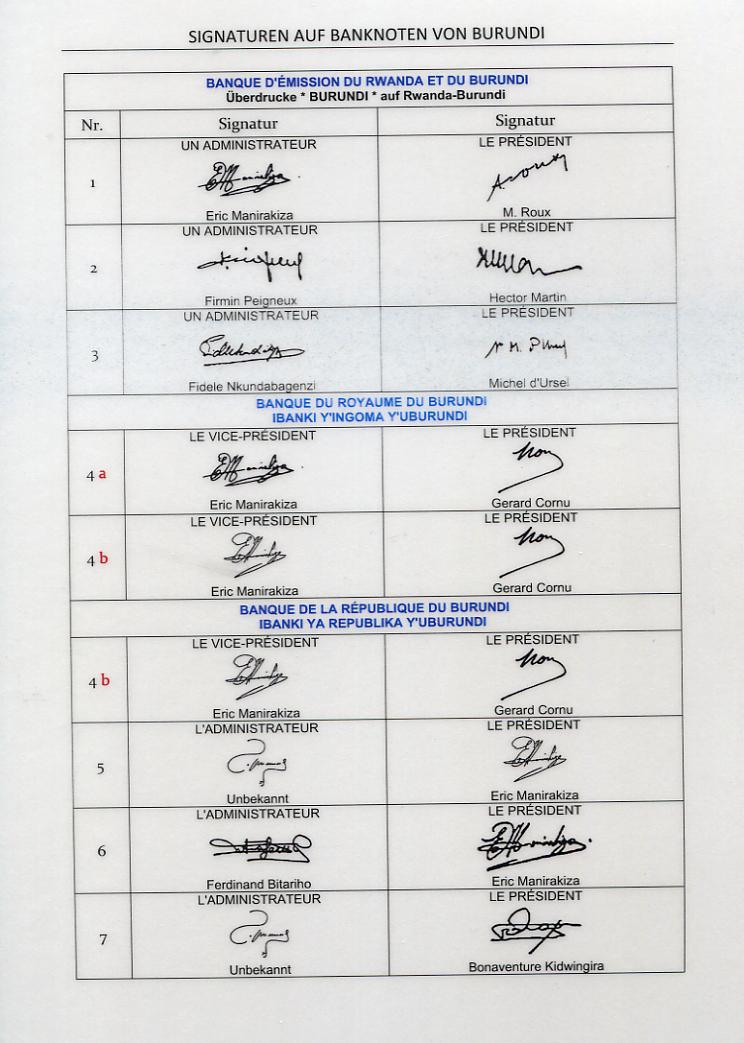 SIGNATUREN AUF BANKNOTEN VON BURUNDI
BANQUE D'ÉMISSION DU RWANDA ET DU BURUNDI
Überdrucke * BURUNDI * auf Rwanda-Burundi
Nr. Signatur Signatur
UN ADMINISTRATEUR LE PRÉSIDENT
1
Eric Manirakiza M. Roux
UN ADMINISTRATEUR LE PRÉSIDENT
2
Firmin Peigneux Hector Martin
UN ADMINISTRATEUR LE PRÉSIDENT
3
Fidele Nkundabagenzi Michel d'Ursel
BANQUE DU ROYAUME DU BURUNDI
IBANKI Y'INGOMA Y'UBURUNDI
LE VICE-PRÉSIDENT LE PRÉSIDENT
4 a
Eric Manirakiza Gerard Cornu
LE VICE-PRÉSIDENT LE PRÉSIDENT
4 b
Eric Manirakiza Gerard Cornu
BANQUE DE LA RÉPUBLIQUE DU BURUNDI
IBANKI YA REPUBLIKA Y'UBURUNDI
LE VICE-PRÉSIDENT LE PRÉSIDENT
4 b
Eric Manirakiza Gerard Cornu
L'ADMINISTRATEUR LE PRÉSIDENT
5
Unbekannt Eric Manirakiza
L'ADMINISTRATEUR LE PRÉSIDENT
6
Ferdinand Bitariho Eric Manirakiza
L'ADMINISTRATEUR LE PRÉSIDENT
7
Unbekannt Bonaventure Kidwingira